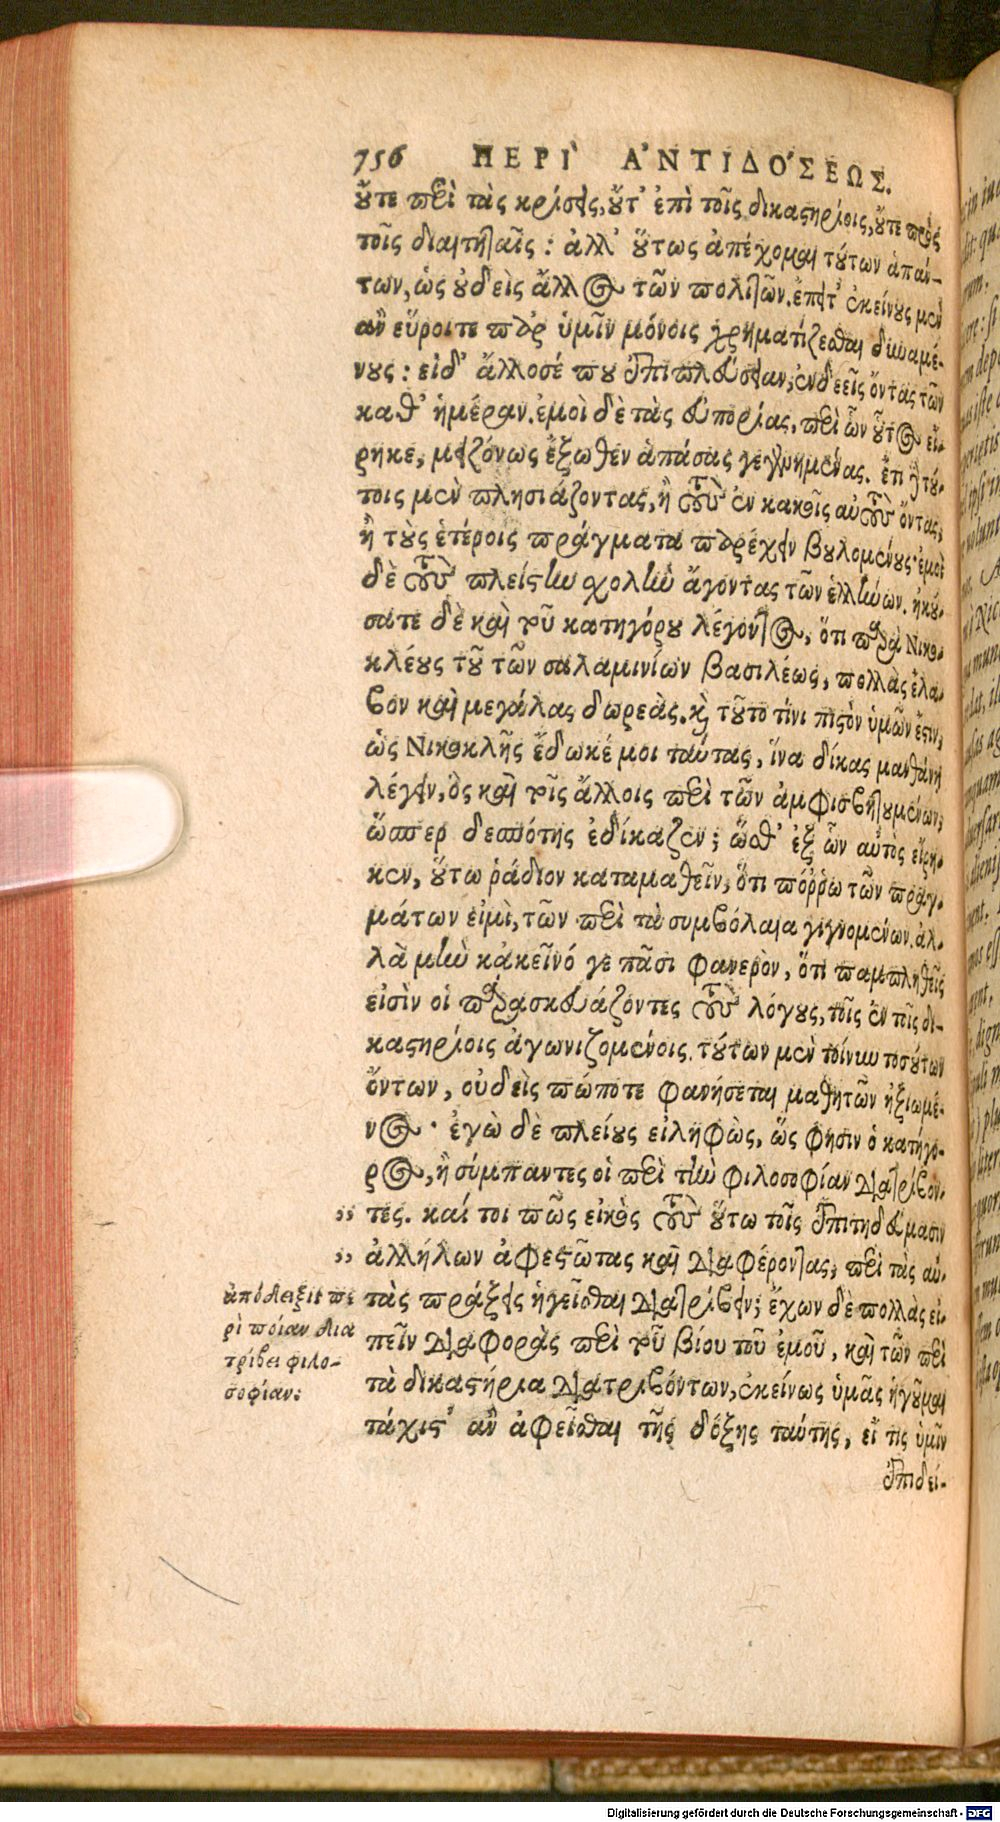 756 ΠΕΡΙ' Ἀ'ΝΤΙΔΟ'ΣΕΩΣ.
οὔτε περὶ τὰς κρίσεις, οὔτ' ἐπὶ τοῖς δικαστηρίοις, οὔτε πρὸς
τοῖς διαιτηταῖς: ἀλλ' οὕτως ἀπέχομαι τούτων ἁπάν-
των, ὡς οὐδεὶς ἄλλος τῶν πολιτῶν. ἔπειτ' ἐκείνους μὲν
ἂν εὕροιτε παρ' ὑμῖν μόνοις χρηματίζεσθαι δυναμέ-
νους: εἰ δ' ἄλλοσέ που ἐπιπλεύσειαν, ἐνδεεῖς ὄντας τῶν
καθ' ἡμέραν. ἐμοὶ δὲ τὰς εὐπορίας, περὶ ὧν οὗτος εἴ-
ρηκε, μειζόνως ἔξωθεν ἁπάσας γεγενημένας. ἔτι δὲ τού-
τοις μὲν πλησιάζοντας, ἢ τοὺς ἐν κακοῖς αὐτοὺς ὄντας,
ἢ τοὺς ἑτέροις πράγματα παρέχειν βουλομένους· ἐμοὶ
δὲ τοὺς πλείστην σχολὴν ἄγοντας τῶν ἑλλήνων. ἠκού-
σατε δὲ καὶ τοῦ κατηγόρου λέγοντος, ὅτι παρὰ Νικο-
κλέους τοῦ τῶν σαλαμινίων βασιλέως, πολλὰς ἔλα-
βον καὶ μεγάλας δωρεάς. καὶ τοῦτο τίνι πιστὸν ὑμῶν ἐστιν,
ὡς Νικοκλῆς ἔδωκέ μοι ταύτας, ἵνα δίκας μανθάνῃ
λέγειν, ὃς καὶ τοῖς ἄλλοις περὶ τῶν ἀμφισβητουμένων,
ὥσπερ δεσπότης ἐδίκαζεν; ὥσθ' ἐξ ὧν αὐτὸς εἴρη-
κεν, οὕτω ῥᾴδιον καταμαθεῖν, ὅτι πόῤῥω τῶν πραγ-
μάτων εἰμὶ, τῶν περὶ τὰ συμβόλαια γιγνομένων. ἀλ-
λὰ μὴν κἀκεῖνό γε πᾶσι φανερὸν, ὅτι παμπληθεῖς
εἰσὶν οἱ παρασκευάζοντες τοὺς λόγους, τοῖς ἐν τοῖς δι-
καστηρίοις ἀγωνιζομένοις. τούτων μὲν τοίνυν τοσούτων
ὄντων, οὐδεὶς πώποτε φανήσεται μαθητῶν ἠξιωμέ-
νος· ἐγὼ δὲ πλείους εἰληφὼς, ὥς φησιν ὁ κατήγο-
ρος, ἢ σύμπαντες οἱ περὶ τὴν φιλοσοφίαν διατρίβον-
,, τες. καί τοι πῶς εἰκὸς τοὺς οὕτω τοῖς ἐπιτηδεύμασιν
,, ἀλλήλων ἀφεστῶτας καὶ διαφέροντας, περὶ τὰς αὐ-
τὰς πράξεις ἡγεῖσθαι διατρίβειν; ἔχων δὲ πολλὰς εἰ-
πεῖν διαφορὰς περὶ τοῦ βίου τοῦ ἐμοῦ, καὶ τῶν περὶ
τὰ δικαστήρια διατριβόντων, ἐκείνως ὑμᾶς ἡγοῦμαι
τάχιστ' ἂν ἀφεῖσθαι τῆς δόξης ταύτης, εἴ τις ὑμῖν
ἐπιδεί-
ἀπόδειξις πε
ρὶ ποίαν δια
τρίβει φιλο-
σοφίαν:
Digitalisierung gefördert durch die Deutsche Forschungsgemeinschaft - DFG